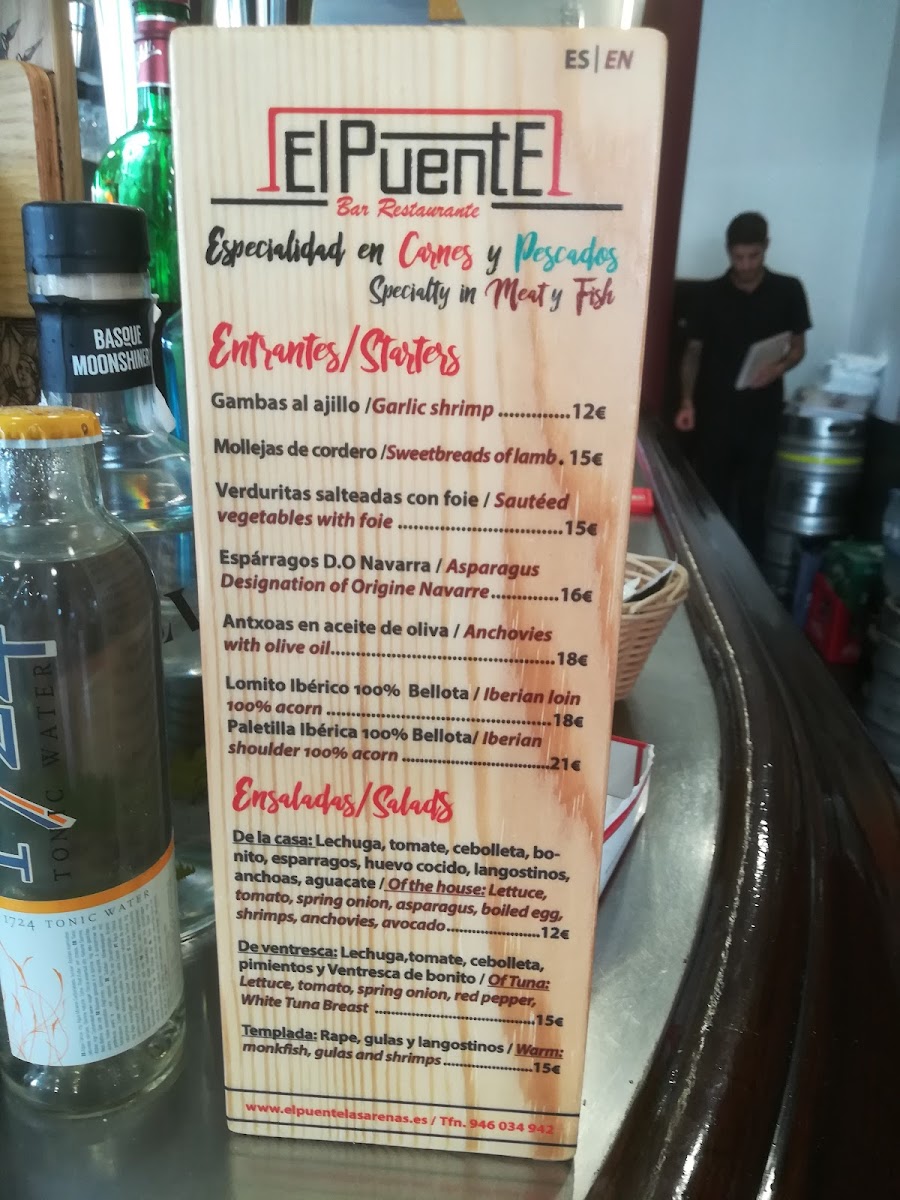 ES|EN
El PuentE
Bar Restaurante
Especialidad en Carnes y Pescados
Specialty in Meat y Fish
Entrantes/Starters
Gambas al ajillo /Garlic shrimp .............12€
Mollejas de cordero /Sweetbreads of lamb. 15€
Verduritas salteadas con foie / Sautéed
vegetables with foie ..............................15€
Espárragos D.O Navarra / Asparagus
Designation of Origine Navarre.............16€
Antxoas en aceite de oliva / Anchovies
with olive oil.........................................18€
Lomito Ibérico 100% Bellota / Iberian loin
100% acorn .........................................18€
Paletilla Ibérica 100% Bellota/ Iberian
shoulder 100% acorn ...........................21€
Ensaladas/Salads
De la casa: Lechuga, tomate, cebolleta, bo-
nito, esparragos, huevo cocido, langostinos,
anchoas, aguacate / Of the house: Lettuce,
tomato, spring onion, asparagus, boiled egg,
shrimps, anchovies, avocado....................12€
De ventresca: Lechuga,tomate, cebolleta,
pimientos y Ventresca de bonito / Of Tuna:
Lettuce, tomato, spring onion, red pepper,
White Tuna Breast ..................................15€
Templada: Rape, gulas y langostinos / Warm:
monkfish, gulas and shrimps...................15€
www.elpuentelasarenas.es / Tfn. 946 034 942
BASQUE
MOONSHINER
1724
TONIC WATER
1724 TONIC WATER